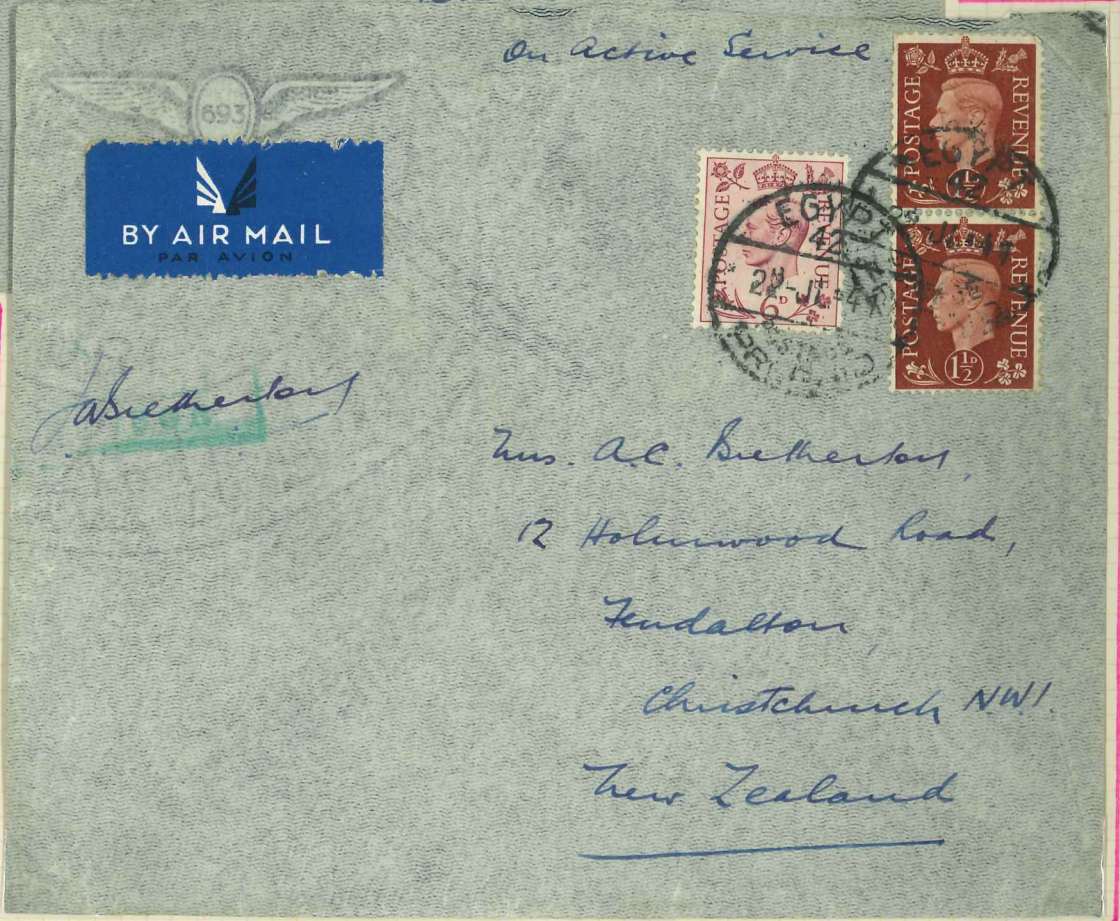 On Active Service
693
BY AIR MAIL
PAR AVION
POSTAGE REVENUE
1½D
POSTAGE REVENUE
6D
POSTAGE REVENUE
1½D
EGYPT
42
JL
EGYPT
42
JL 41
PREPAID
JABretherton
Mrs. A.C. Bretherton,
12 Holmwood Road,
Fendalton
Christchurch N.W1.
New Zealand